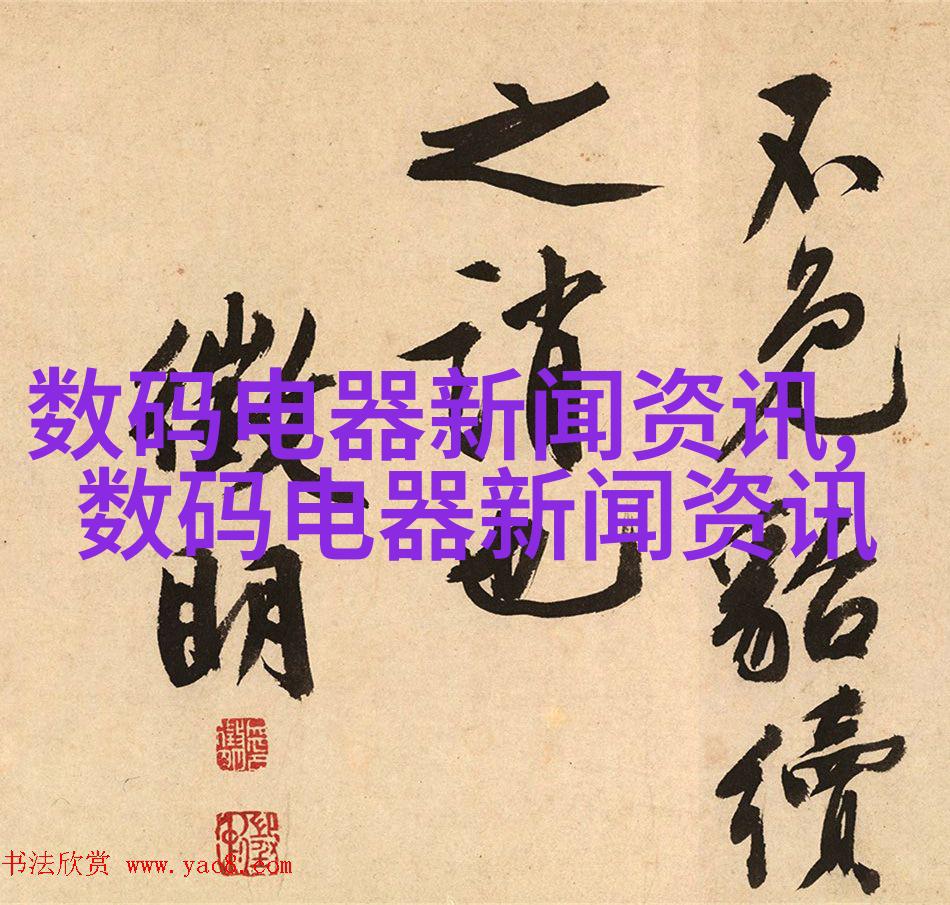 不免貂續
之誚也
徵明
数码电器新闻资讯,
数码电器新闻资讯
书法欣赏 www.yac8.com